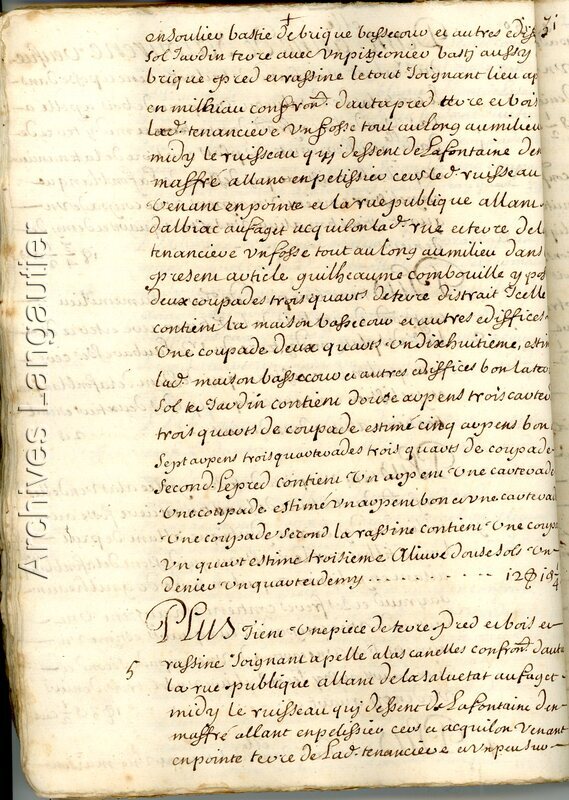 31
ensoulieu bastie de brique bassecour et autres edif
sol Jardin terre avec Unpizionier bastj aussy
brique pred et rassine le tout Joignant lieu ap
en milhau confron. d'auta pred terre et bois
lad. tenanciere Unfossé tout aulong aumilieu
midy le ruisseau quj dessent de Lafontaine den
maffre allant enpelissier cers led. ruisseau
Venant enpointe et la rue publique allant
dalbiac aufaget acquilon lad. rue et terre de l
tenanciere Unfossé tout aulong aumilieu dans
present article guilheaume combouille y pos
deux coupades trois quarts deterre distrait Jcelle
contient la maison bassecour et autres ediffices
Une coupade deux quarts Undixhuitieme, estim
lad. maison bassecour et autres ediffices bon la terre
sol et Jardin contient douse arpens trois carteu
trois quarts de coupade estimé cinq arpens bon
sept arpens trois quarterades trois quarts de coupade
second. Lepred contient Un arpent Une carterade
Une coupade estimé Un arpent bon et une carterad
Une coupade second la rassine contient Une coupa
Un quart estimé troisieme Alivré douse sols Un
denier Un quart et demy
PLUS Tient Une piece de terre pred et bois et
5
rassine Joignant apellé alas canelles confron. d'auta
la rue publique allant de lasaluetat aufaget
midy le ruisseau quj dessent de Lafontaine den
maffre allant enpelissier cers et acquilon Venant
enpointe terre de Lad. tenanciere et Unpeu sur
Archives Langautier